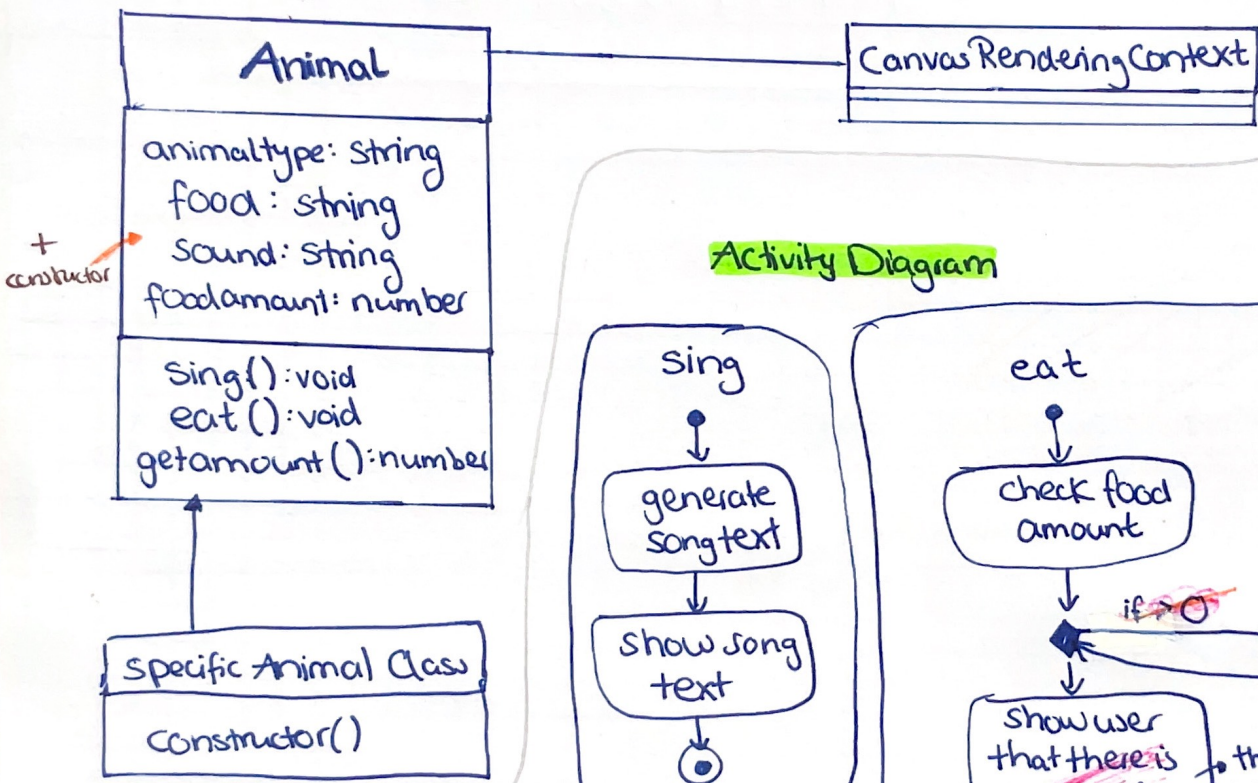 Animal
CanvasRenderingContext
animaltype: string
food: string
sound: string
foodamount: number
+
constuctor
sing(): void
eat(): void
getamount(): number
specific Animal Class
constructor()
Activity Diagram
sing
generate
songtext
show song
text
eat
check food
amount
if > 0
show user
that there is